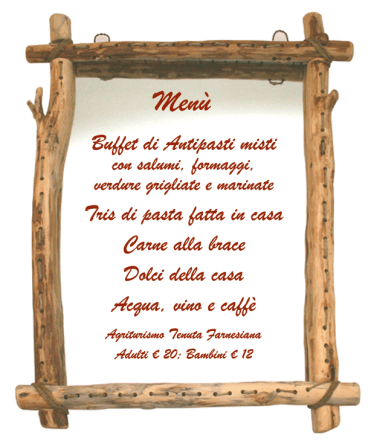 Menù
Buffet di Antipasti misti
con salumi, formaggi,
verdure grigliate e marinate
Tris di pasta fatta in casa
Carne alla brace
Dolci della casa
Acqua, vino e caffè
Agriturismo Tenuta Farnesiana
Adulti € 20; Bambini € 12